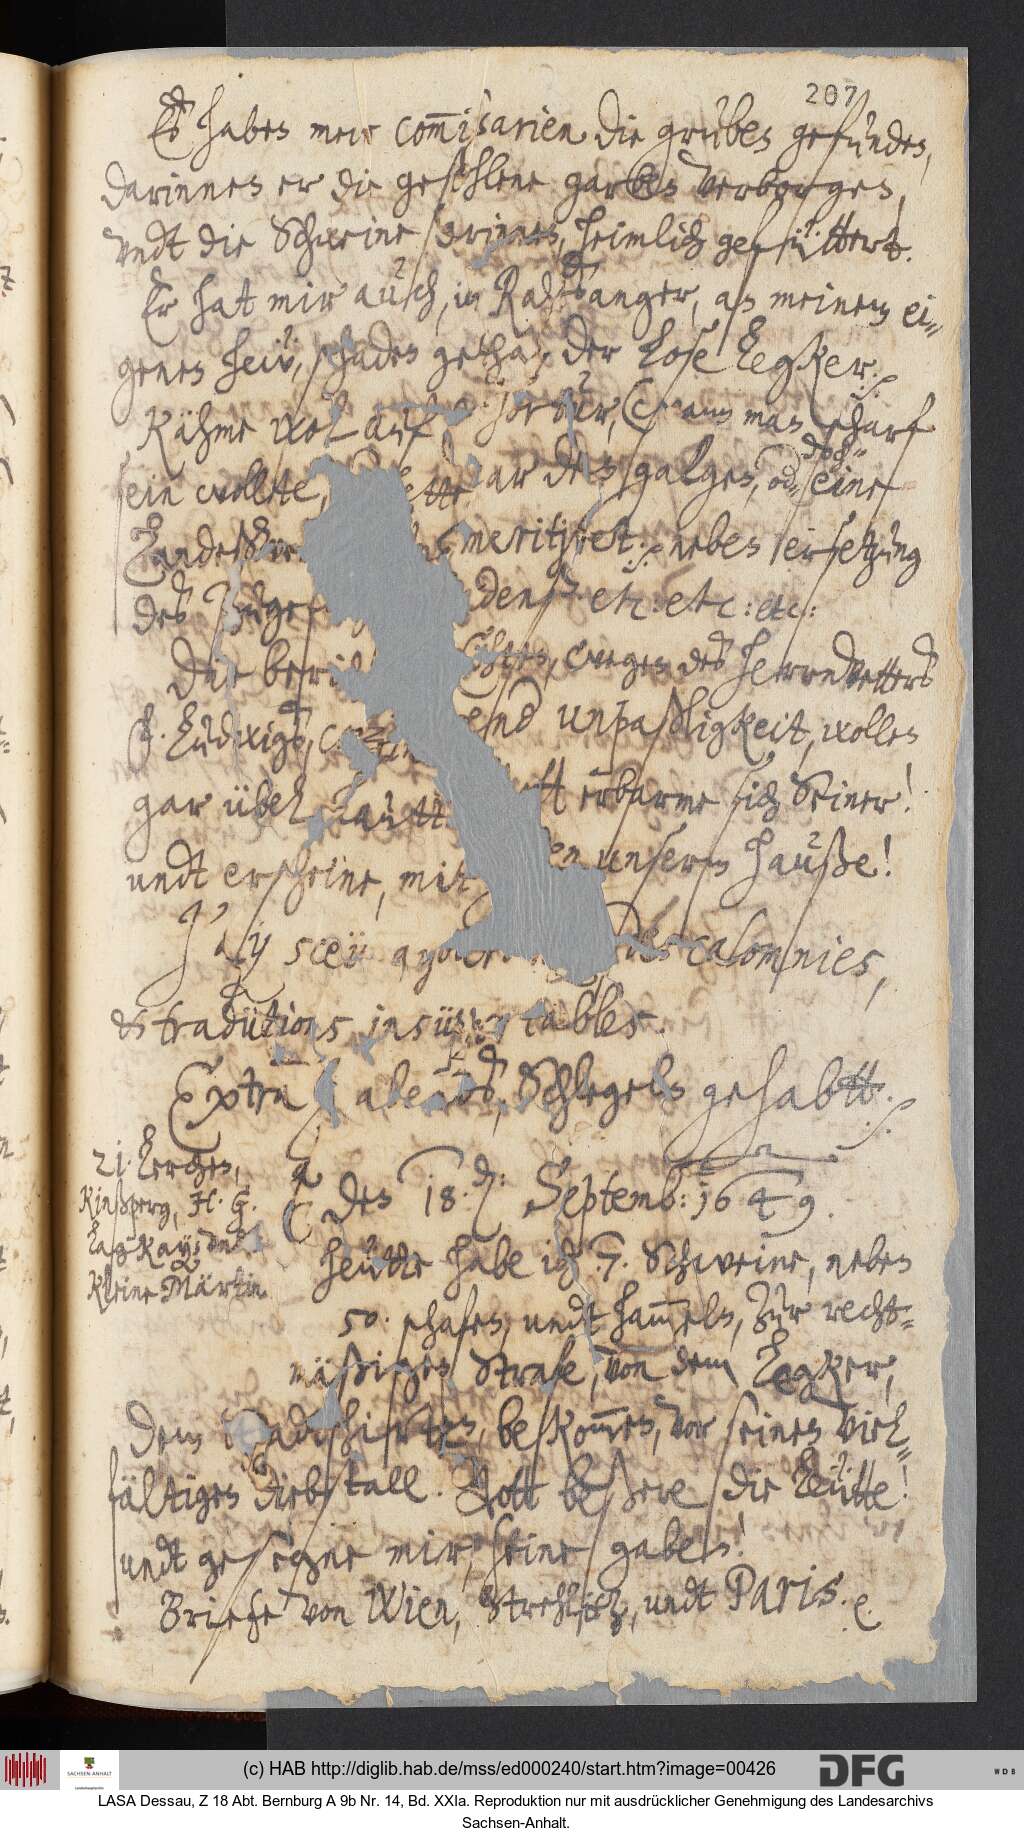 207
Es haben mein com̄isarien die gruben gefunden,
darinnen er die gestohlene garben verborgen,
undt die Schweine darinnen, heimlich gefüttert.
Er hat mir auch, in Rahtsanger, an meinem ei=
genen heü, schaden gethan, der lose Legker.
Kähme wol auf die Tortur, wann man scharf
sein wollte, hette gar den galgen, oder doch eine
Landes meritiret: neben ersetzung
des zuge dens etc: etc: etc:
Die beri wegen des herrnvetters
F. Ludwigs, end unpaßligkeit, wollen
gar übel lautt erbarme sich Seiner!
undt erscheine, mit en unserm hause!
J'ay sceü des calomnies,
& tradütions insüpportables.
Extra abends, Schlegeln gehabtt.
21 Lerchen,
Kinßperg, H. G.
Kleine Märtin
☾ den 18. 7: Septemb: 1649.
Heütte habe ich 7. Schweine, neben
50. schafen, undt ham̄eln, zur recht=
mäßigen Strafe, von dem Legker,
dem Stadthirten, bekom̄en, vor seinen viel=
fältigen diebstall. Gott beßere die Leütte!
undt gesegne mir, seine gaben!
Briefe von Wien, Strehlitz, undt Paris. e.
(c) HAB http://diglib.hab.de/mss/ed000240/start.htm?image=00426
SACHSEN-ANHALT
DFG
WDB
LASA Dessau, Z 18 Abt. Bernburg A 9b Nr. 14, Bd. XXIa. Reproduktion nur mit ausdrücklicher Genehmigung des Landesarchivs
Sachsen-Anhalt.